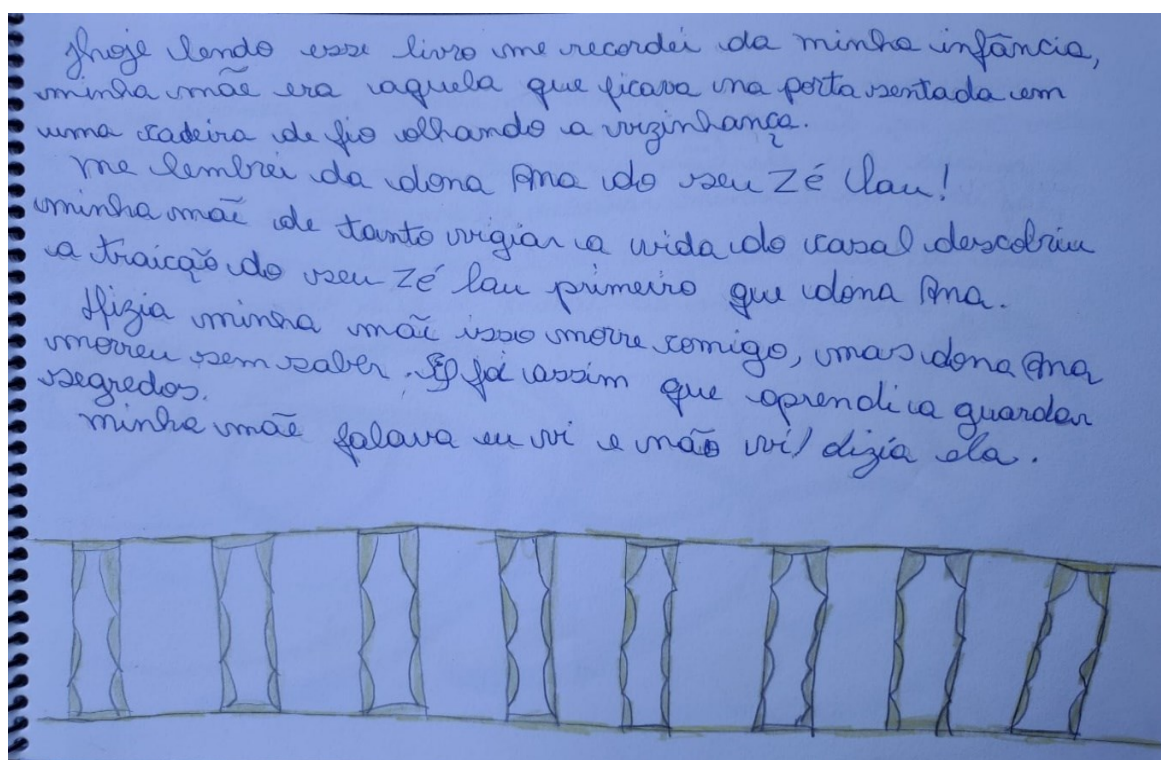 Hoje lendo esse livro me recordei da minha infância,
minha mãe era aquela que ficava na porta sentada em
uma cadeira de fio olhando a vizinhança.
me lembrei da dona Ana do seu Zé lau!
minha mãe de tanto vigiar a vida do casal descobriu
a traição do seu Zé lau primeiro que dona Ana.
dizia minha mãe isso morre comigo, mas dona Ana
morreu sem saber. foi assim que aprendi a guardar
segredos.
minha mãe falava eu vi e não vi/ dizia ela.